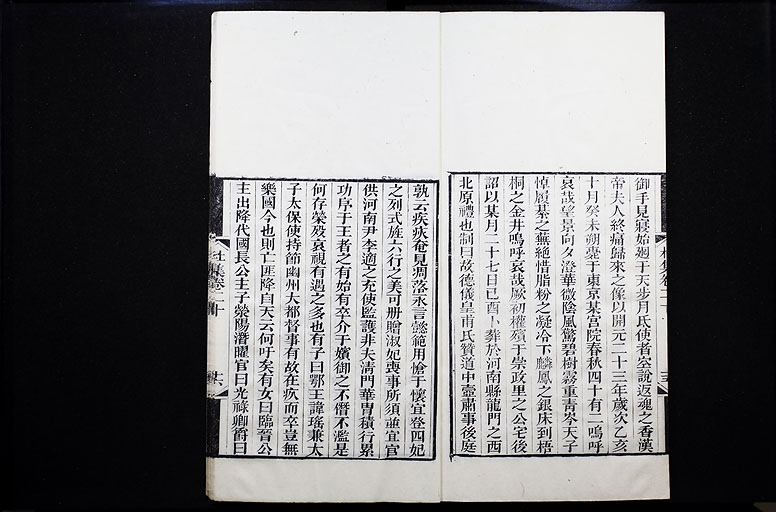 御手見寢始廻于天步月氏使者空說返魂之香漢
帝夫人終痛歸來之像以開元二十三年歲次乙亥
十月癸未朔薨于東京某宮院春秋四十有二嗚呼
哀哉望景向夕澄華微陰風驚碧樹霧重青岑天子
悼履綦之蕪絕惜脂粉之凝冷下麟鳳之銀床到梧
桐之金井嗚呼哀哉厥初權殯于崇政里之公宅後
詔以某月二十七日己酉卜葬於河南縣龍門之西
北原禮也制曰故德儀皇甫氏贊道中壼肅事後庭
孰云疾疢奄見凋落永言懿範用愴于懷宜登四妃
之列式旌六行之美可冊贈淑妃喪事所須並宜官
供河南尹李適之充使監護非夫清門華冑積行累
功序于王者之有始有卒介于嬪御之不僭不濫是
何存榮殁哀視有遇之多也有子曰鄂王諱瑤兼太
子太保使持節幽州大都督事有故在疚而卒豈無
樂國今也則亡匪降自天云何吁矣有女曰臨晉公
主出降代國長公主子滎陽潛曜官曰光祿卿爵曰
杜集卷二十